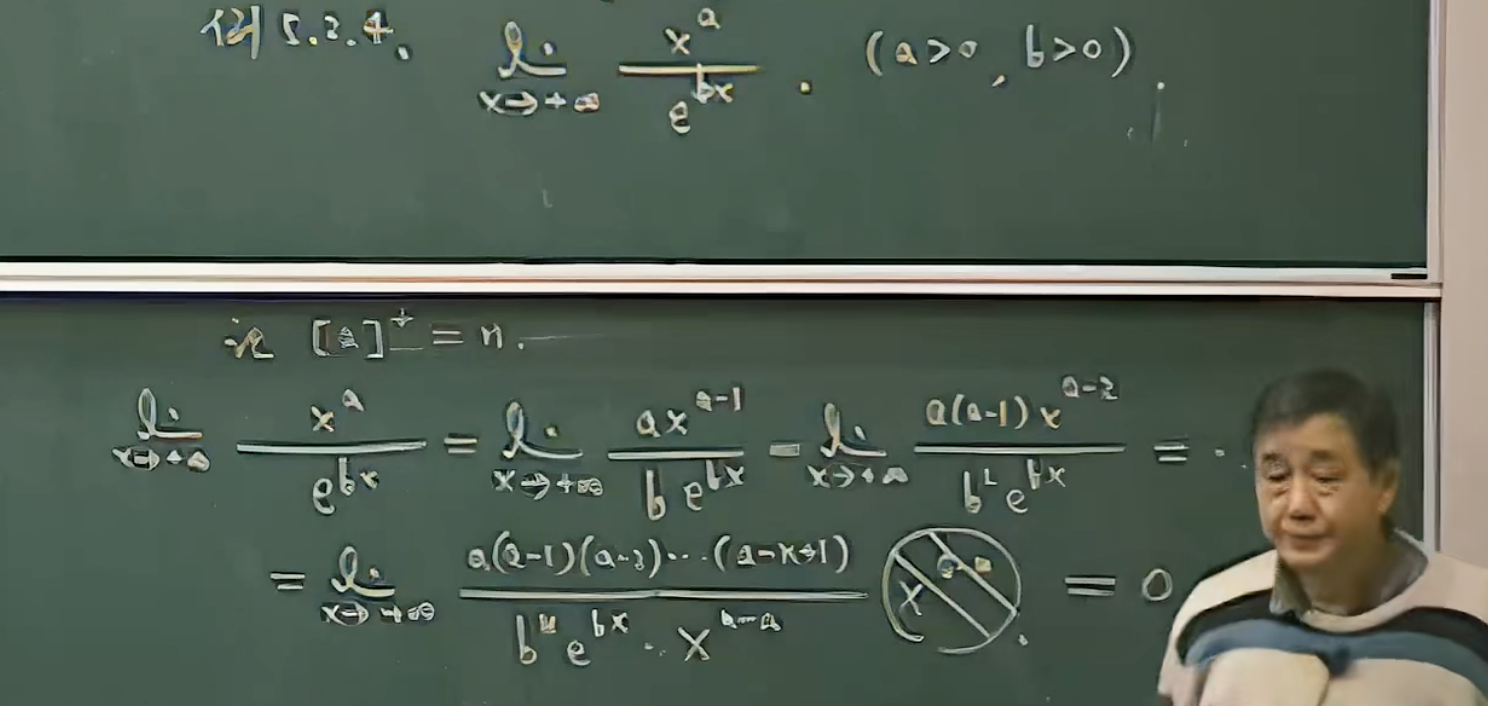 例5.2.4. lim x→+∞ x^a / e^{bx} . (a>0, b>0).
记 [a]+ = n.
lim x→+∞ x^a / e^{bx} = lim x→+∞ a x^{a-1} / b e^{bx} = lim x→+∞ a(a-1) x^{a-2} / b² e^{bx} = ·
= lim x→+∞ a(a-1)(a-2)···(a-n+1) / b^n e^{bx} · x^{n-a} = 0